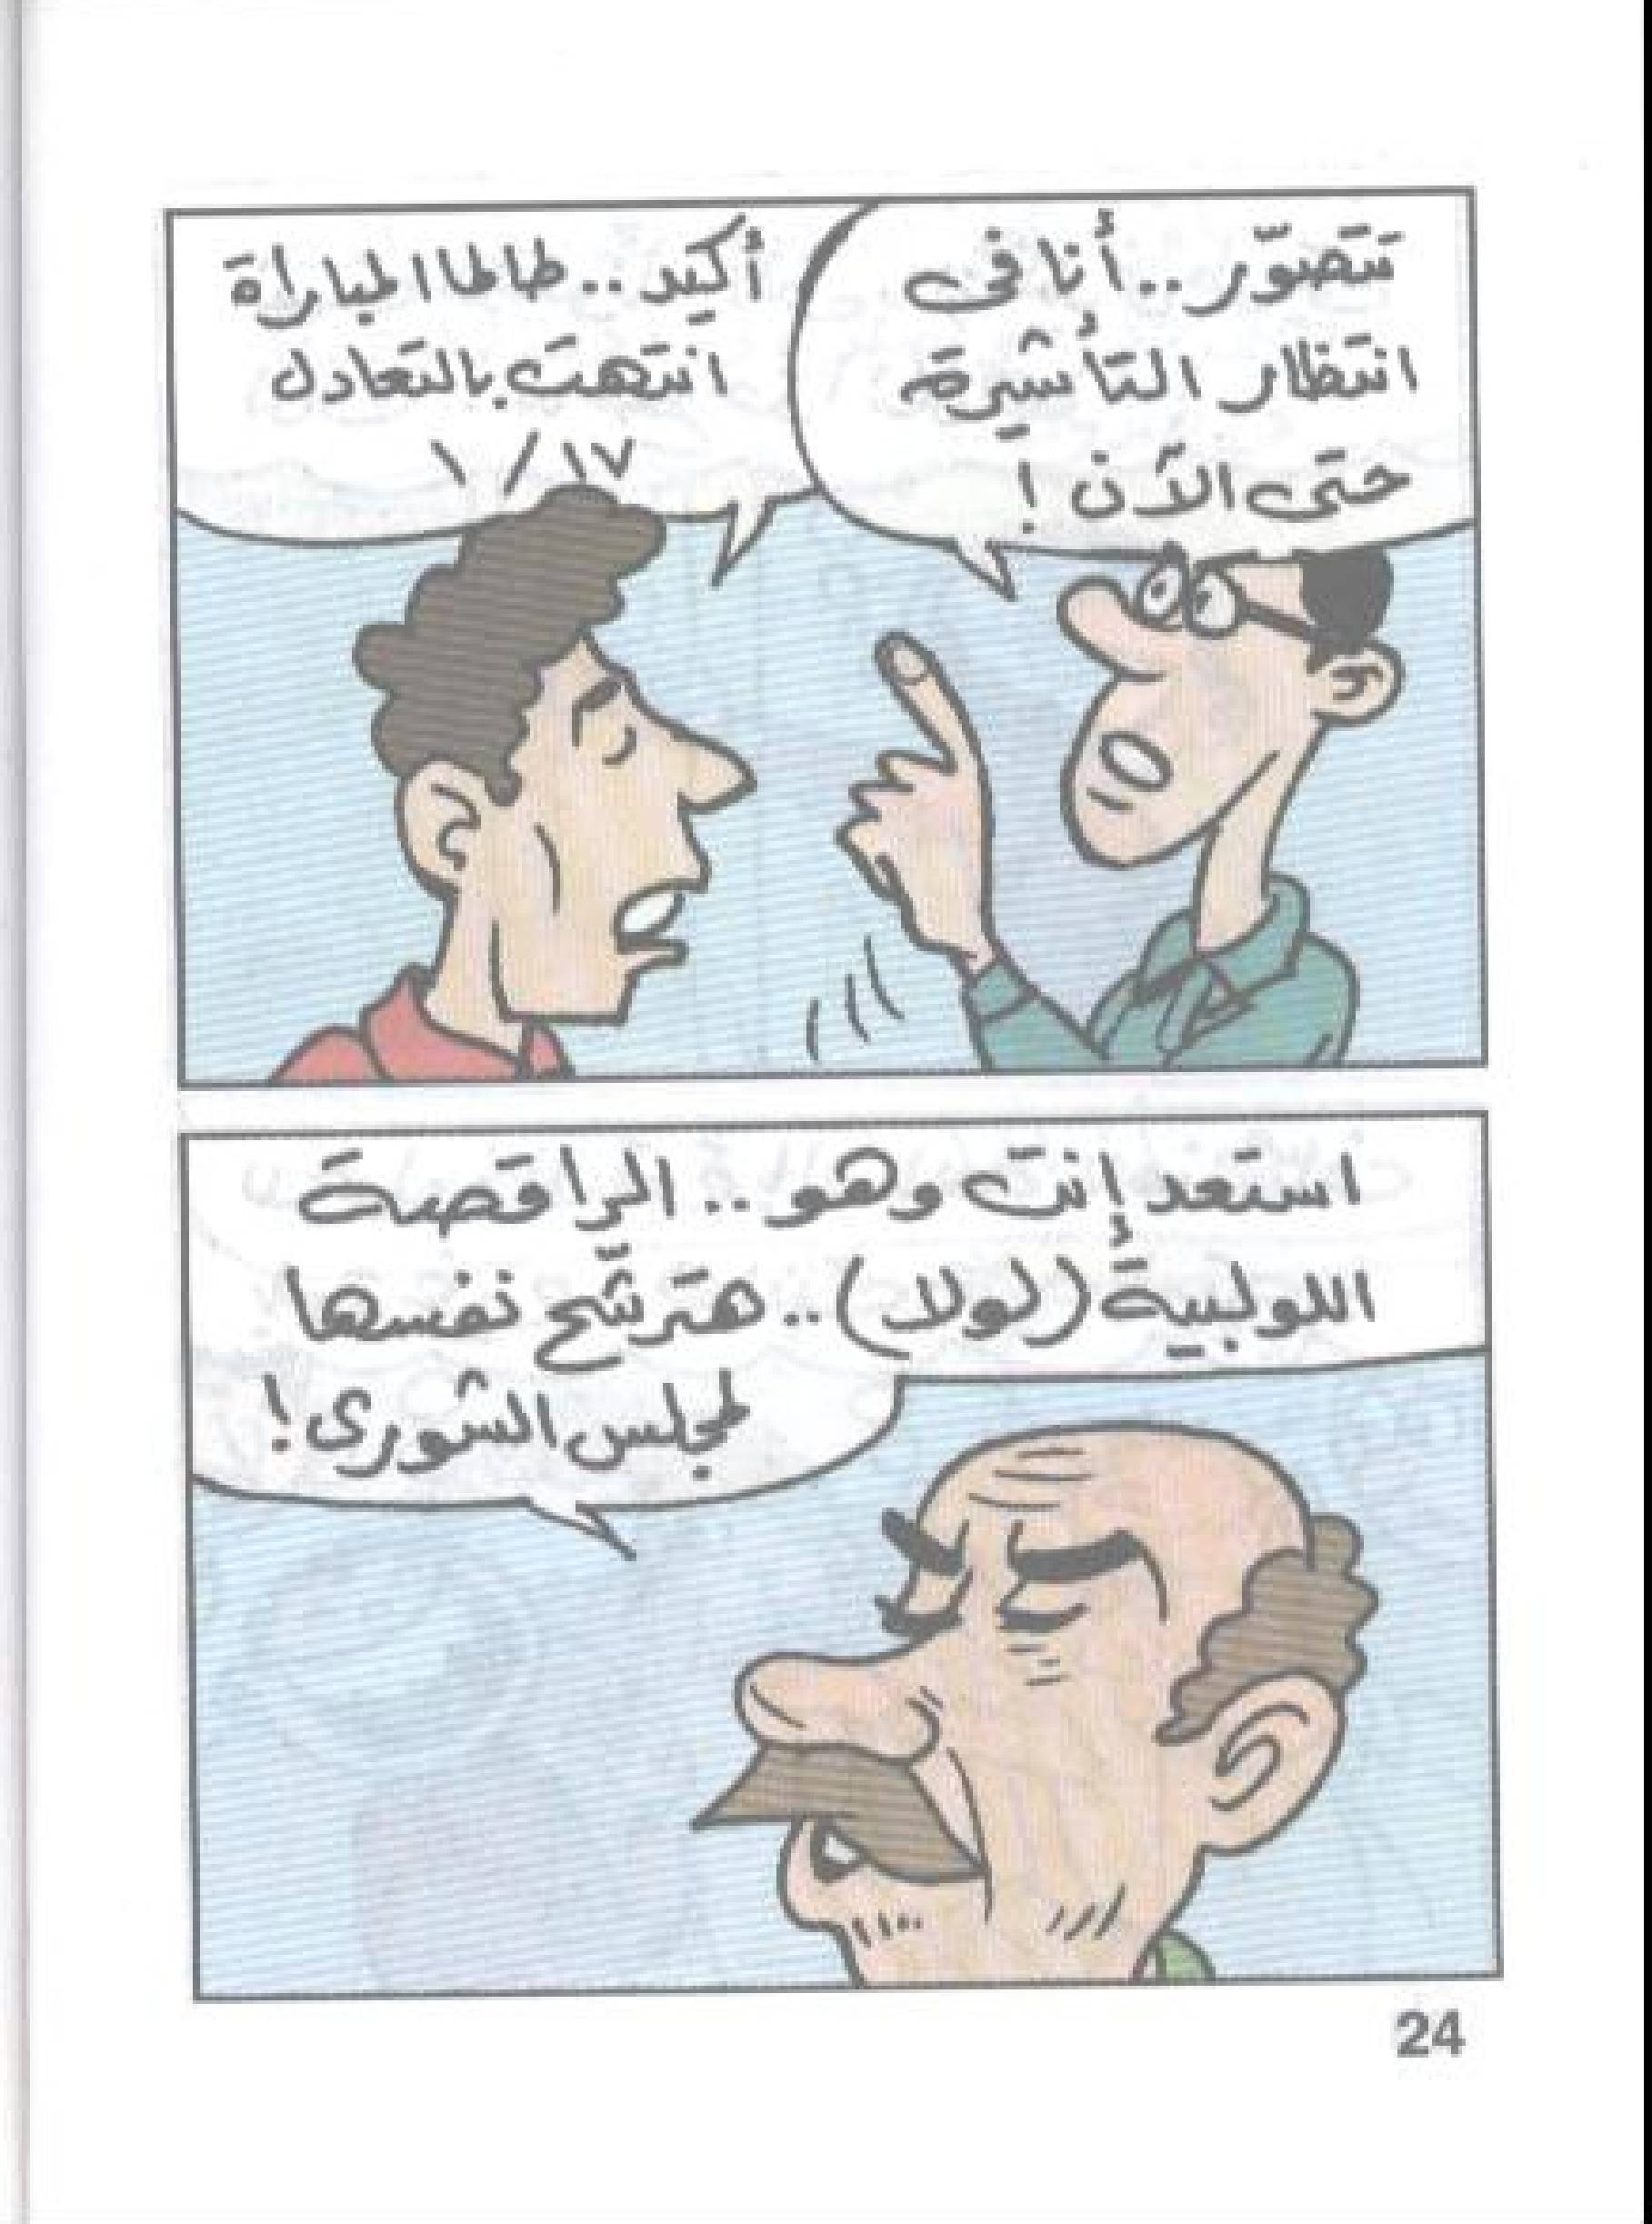 تتصوّر..أنا فى
انتظار التأشيرة
حتى الآن!
أكيد..طالما المباراة
انتهت بالتعادل
١٧/١
استعد إنت وهو..الراقصة
اللولبية (لولا)..هترشّح نفسها
لمجلس الشورى!
24